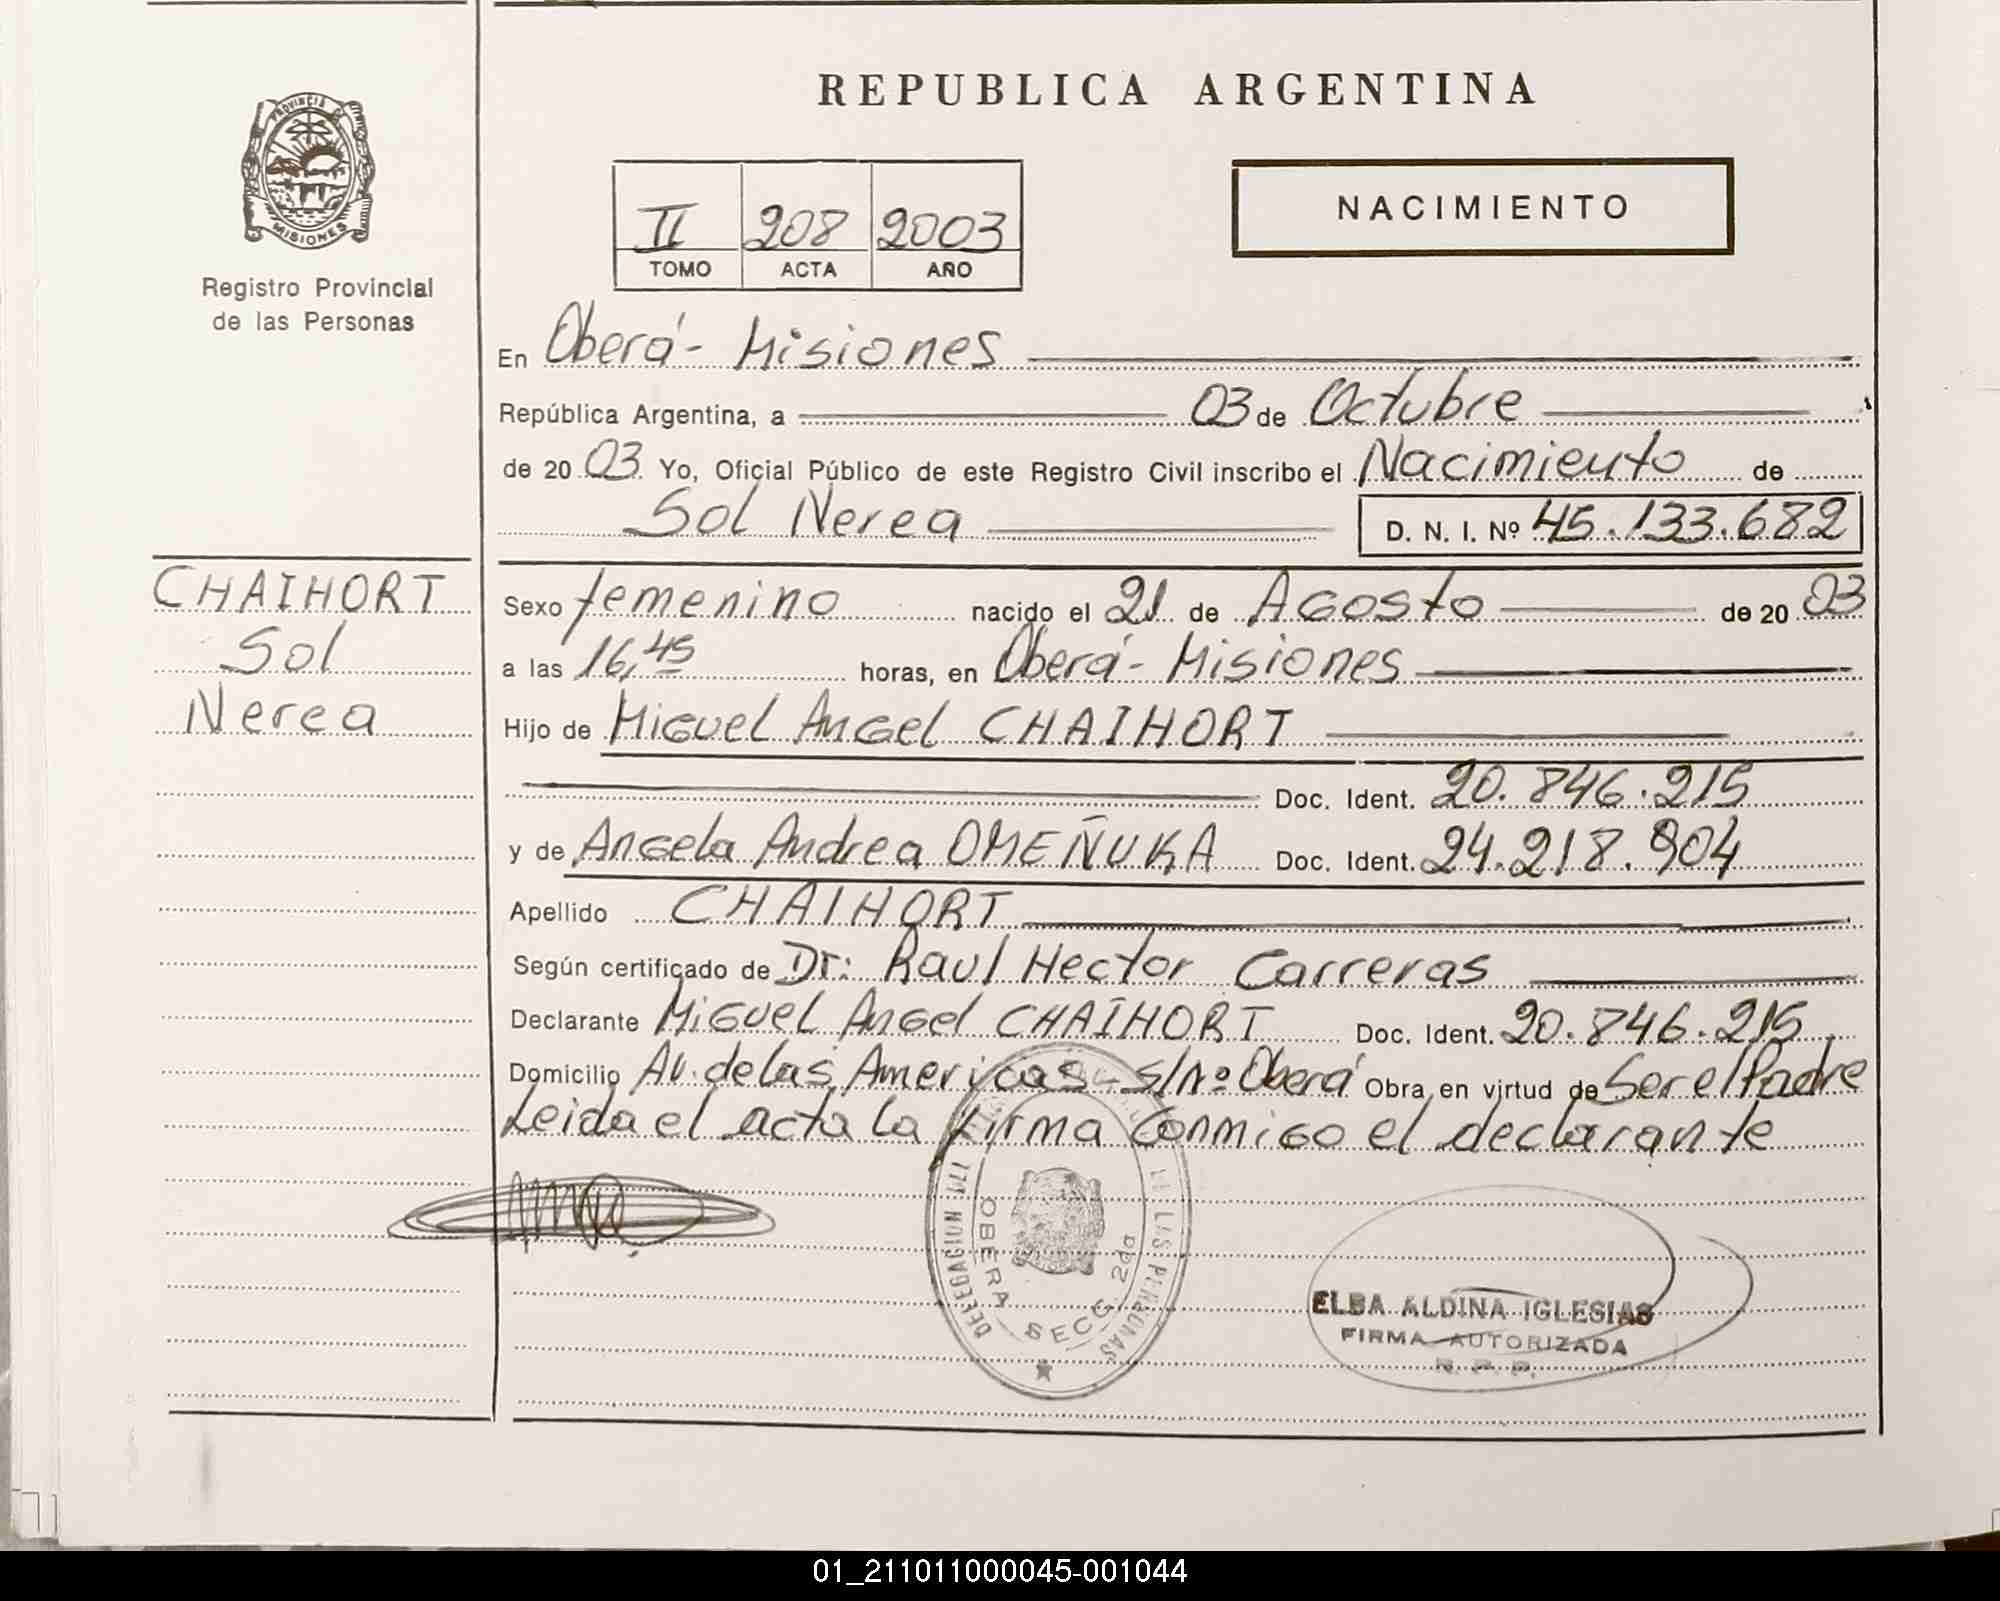 REPUBLICA ARGENTINA
PROVINCIA DE
MISIONES
Registro Provincial
de las Personas
II 208 2003
TOMO ACTA AÑO
NACIMIENTO
En Oberá - Misiones
República Argentina, a 03 de Octubre
de 20 03 Yo, Oficial Público de este Registro Civil inscribo el Nacimiento de
Sol Nerea D. N. I. Nº 45.133.682
CHAIHORT
Sol
Nerea
Sexo femenino nacido el 21 de Agosto de 20 03
a las 16,45 horas, en Oberá - Misiones
Hijo de Miguel Angel CHAIHORT
Doc. Ident. 20.846.215
y de Angela Andrea OMEÑUKA Doc. Ident. 24.218.904
Apellido CHAIHORT
Según certificado de Dr: Raul Hector Carreras
Declarante Miguel Angel CHAIHORT Doc. Ident. 20.846.215
Domicilio Av. de las Americas - S/Nº Oberá Obra en virtud de Ser el Padre
Leida el acta la firma Conmigo el declarante
DELEGACION DEL DE LAS PERSONAS
OBERA SECC. 2da
ELBA ALDINA IGLESIAS
FIRMA AUTORIZADA
R. P. P.
01_211011000045-001044